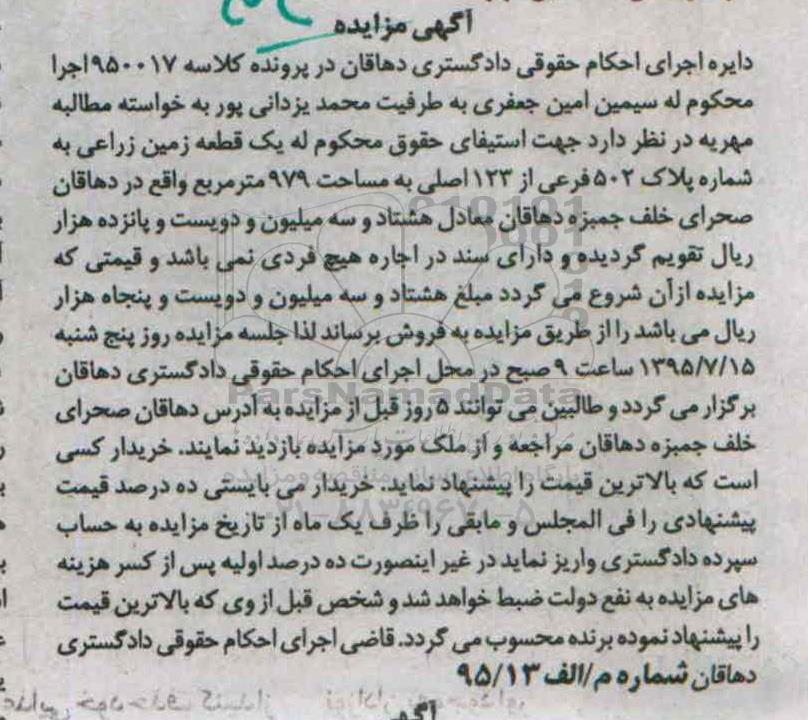 آگهی مزایده
دایره اجرای احکام حقوقی دادگستری دهاقان در پرونده کلاسه ۹۵۰۰۱۷اجرا
محکوم له سیمین امین جعفری به طرفیت محمد یزدانی پور به خواسته مطالبه
مهریه در نظر دارد جهت استیفای حقوق محکوم له یک قطعه زمین زراعی به
شماره پلاک ۵۰۲ فرعی از ۱۲۳ اصلی به مساحت ۹۷۹ مترمربع واقع در دهاقان
صحرای خلف جمبزه دهاقان معادل هشتاد و سه میلیون و دویست و پانزده هزار
ریال تقویم گردیده و دارای سند در اجاره هیچ فردی نمی باشد و قیمتی که
مزایده ازآن شروع می گردد مبلغ هشتاد و سه میلیون و دویست و پنجاه هزار
ریال می باشد را از طریق مزایده به فروش برساند لذا جلسه مزایده روز پنج شنبه
۱۳۹۵/۷/۱۵ ساعت ۹ صبح در محل اجرای احکام حقوقی دادگستری دهاقان
برگزار می گردد و طالبین می توانند ۵ روز قبل از مزایده به آدرس دهاقان صحرای
خلف جمبزه دهاقان مراجعه و از ملک مورد مزایده بازدید نمایند. خریدار کسی
است که بالاترین قیمت را پیشنهاد نماید. خریدار می بایستی ده درصد قیمت
پیشنهادی را فی المجلس و مابقی را ظرف یک ماه از تاریخ مزایده به حساب
سپرده دادگستری واریز نماید در غیر اینصورت ده درصد اولیه پس از کسر هزینه
های مزایده به نفع دولت ضبط خواهد شد و شخص قبل از وی که بالاترین قیمت
را پیشنهاد نموده برنده محسوب می گردد. قاضی اجرای احکام حقوقی دادگستری
دهاقان شماره م/الف ۹۵/۱۳
ParsNamadData
۰۲۱-۸۸۳۴۹۶۷۰-۵